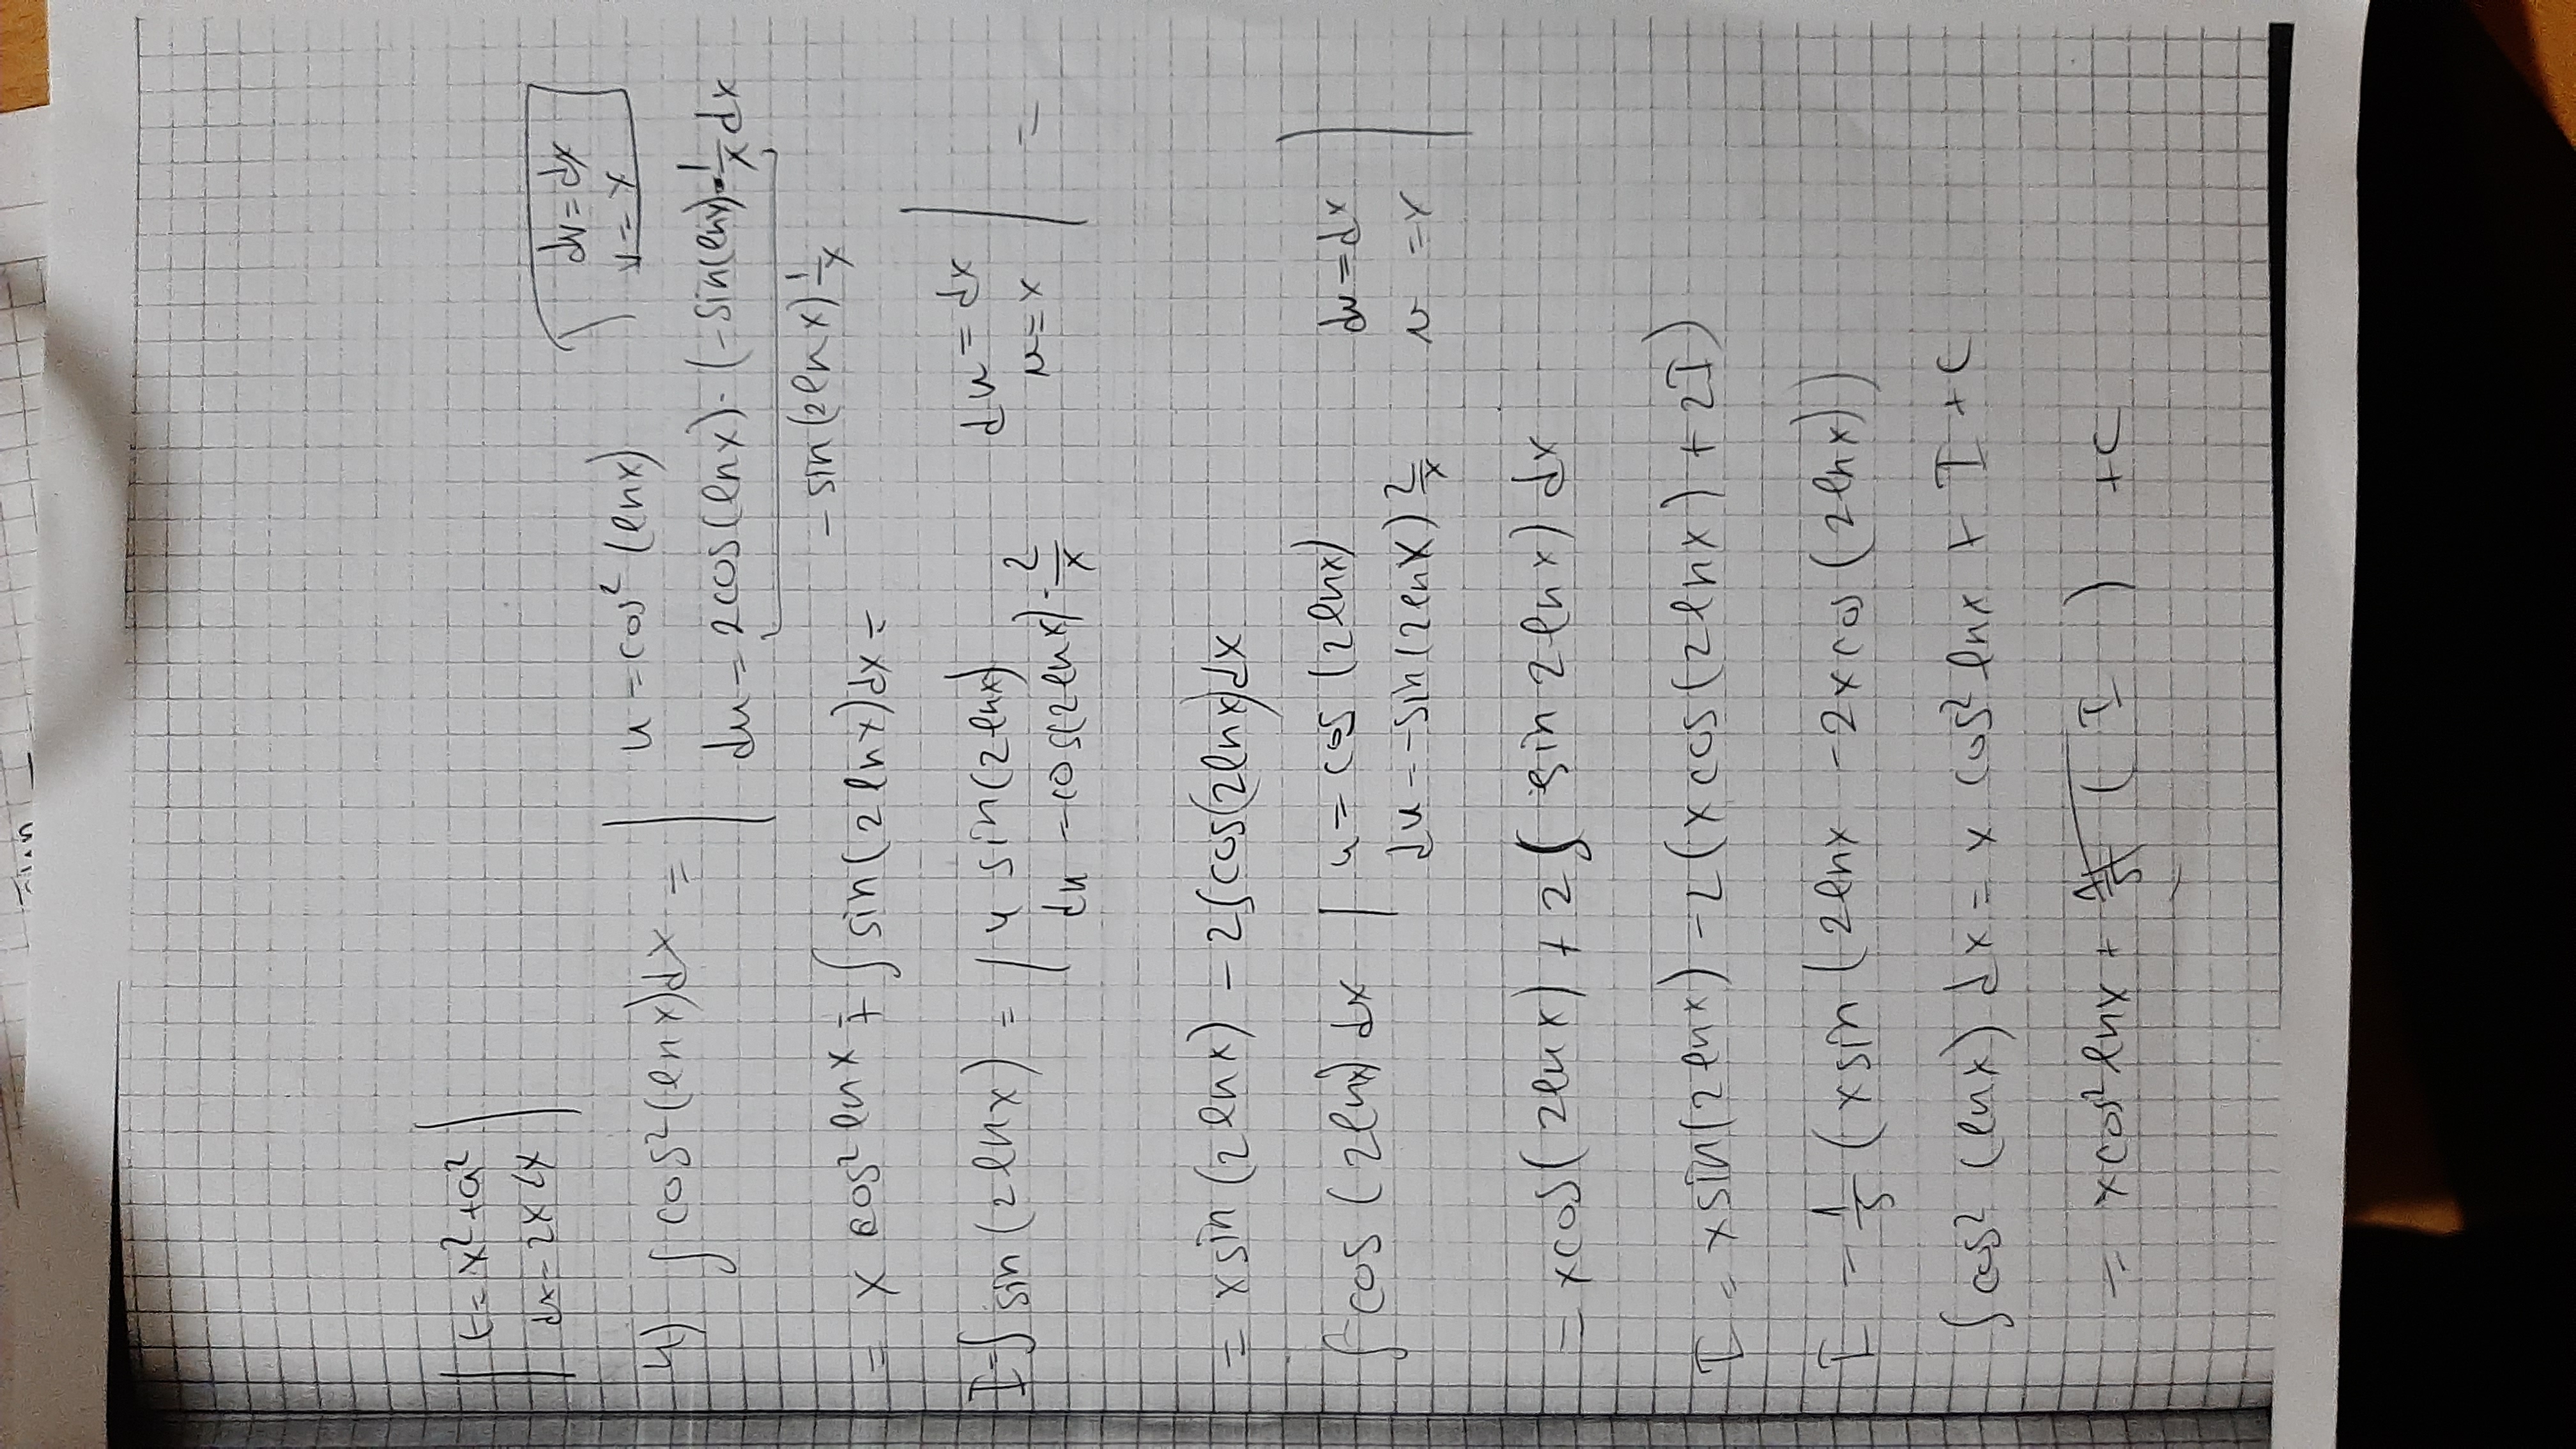 t = x² + a²
dx = 2x dx
dv = dx
v = x
4) ∫ cos² (ln x) dx = | u = cos² (ln x)
du = 2cos(ln x) · (-sin(ln x) · 1/x dx
- sin(2 ln x) 1/x
= x cos² ln x + ∫ sin(2 ln x) dx =
I = ∫ sin (2 ln x) = | u sin(2 ln x) du = dx | =
du = cos(2 ln x) · 2/x v = x
= x sin (2 ln x) - 2 ∫ cos(2 ln x) dx
∫ cos (2 ln x) dx | u = cos (2 ln x) dv = dx |
du = -sin(2 ln x) 2/x v = x
= x cos(2 ln x) + 2 ∫ sin 2 ln x) dx
I = x sin(2 ln x) - 2 (x cos(2 ln x) + 2I)
I = 1/5 (x sin (2 ln x - 2x cos (2 ln x))
∫ cos² (ln x) dx = x cos² ln x + I + C
= x cos² ln x + ( I ) + C